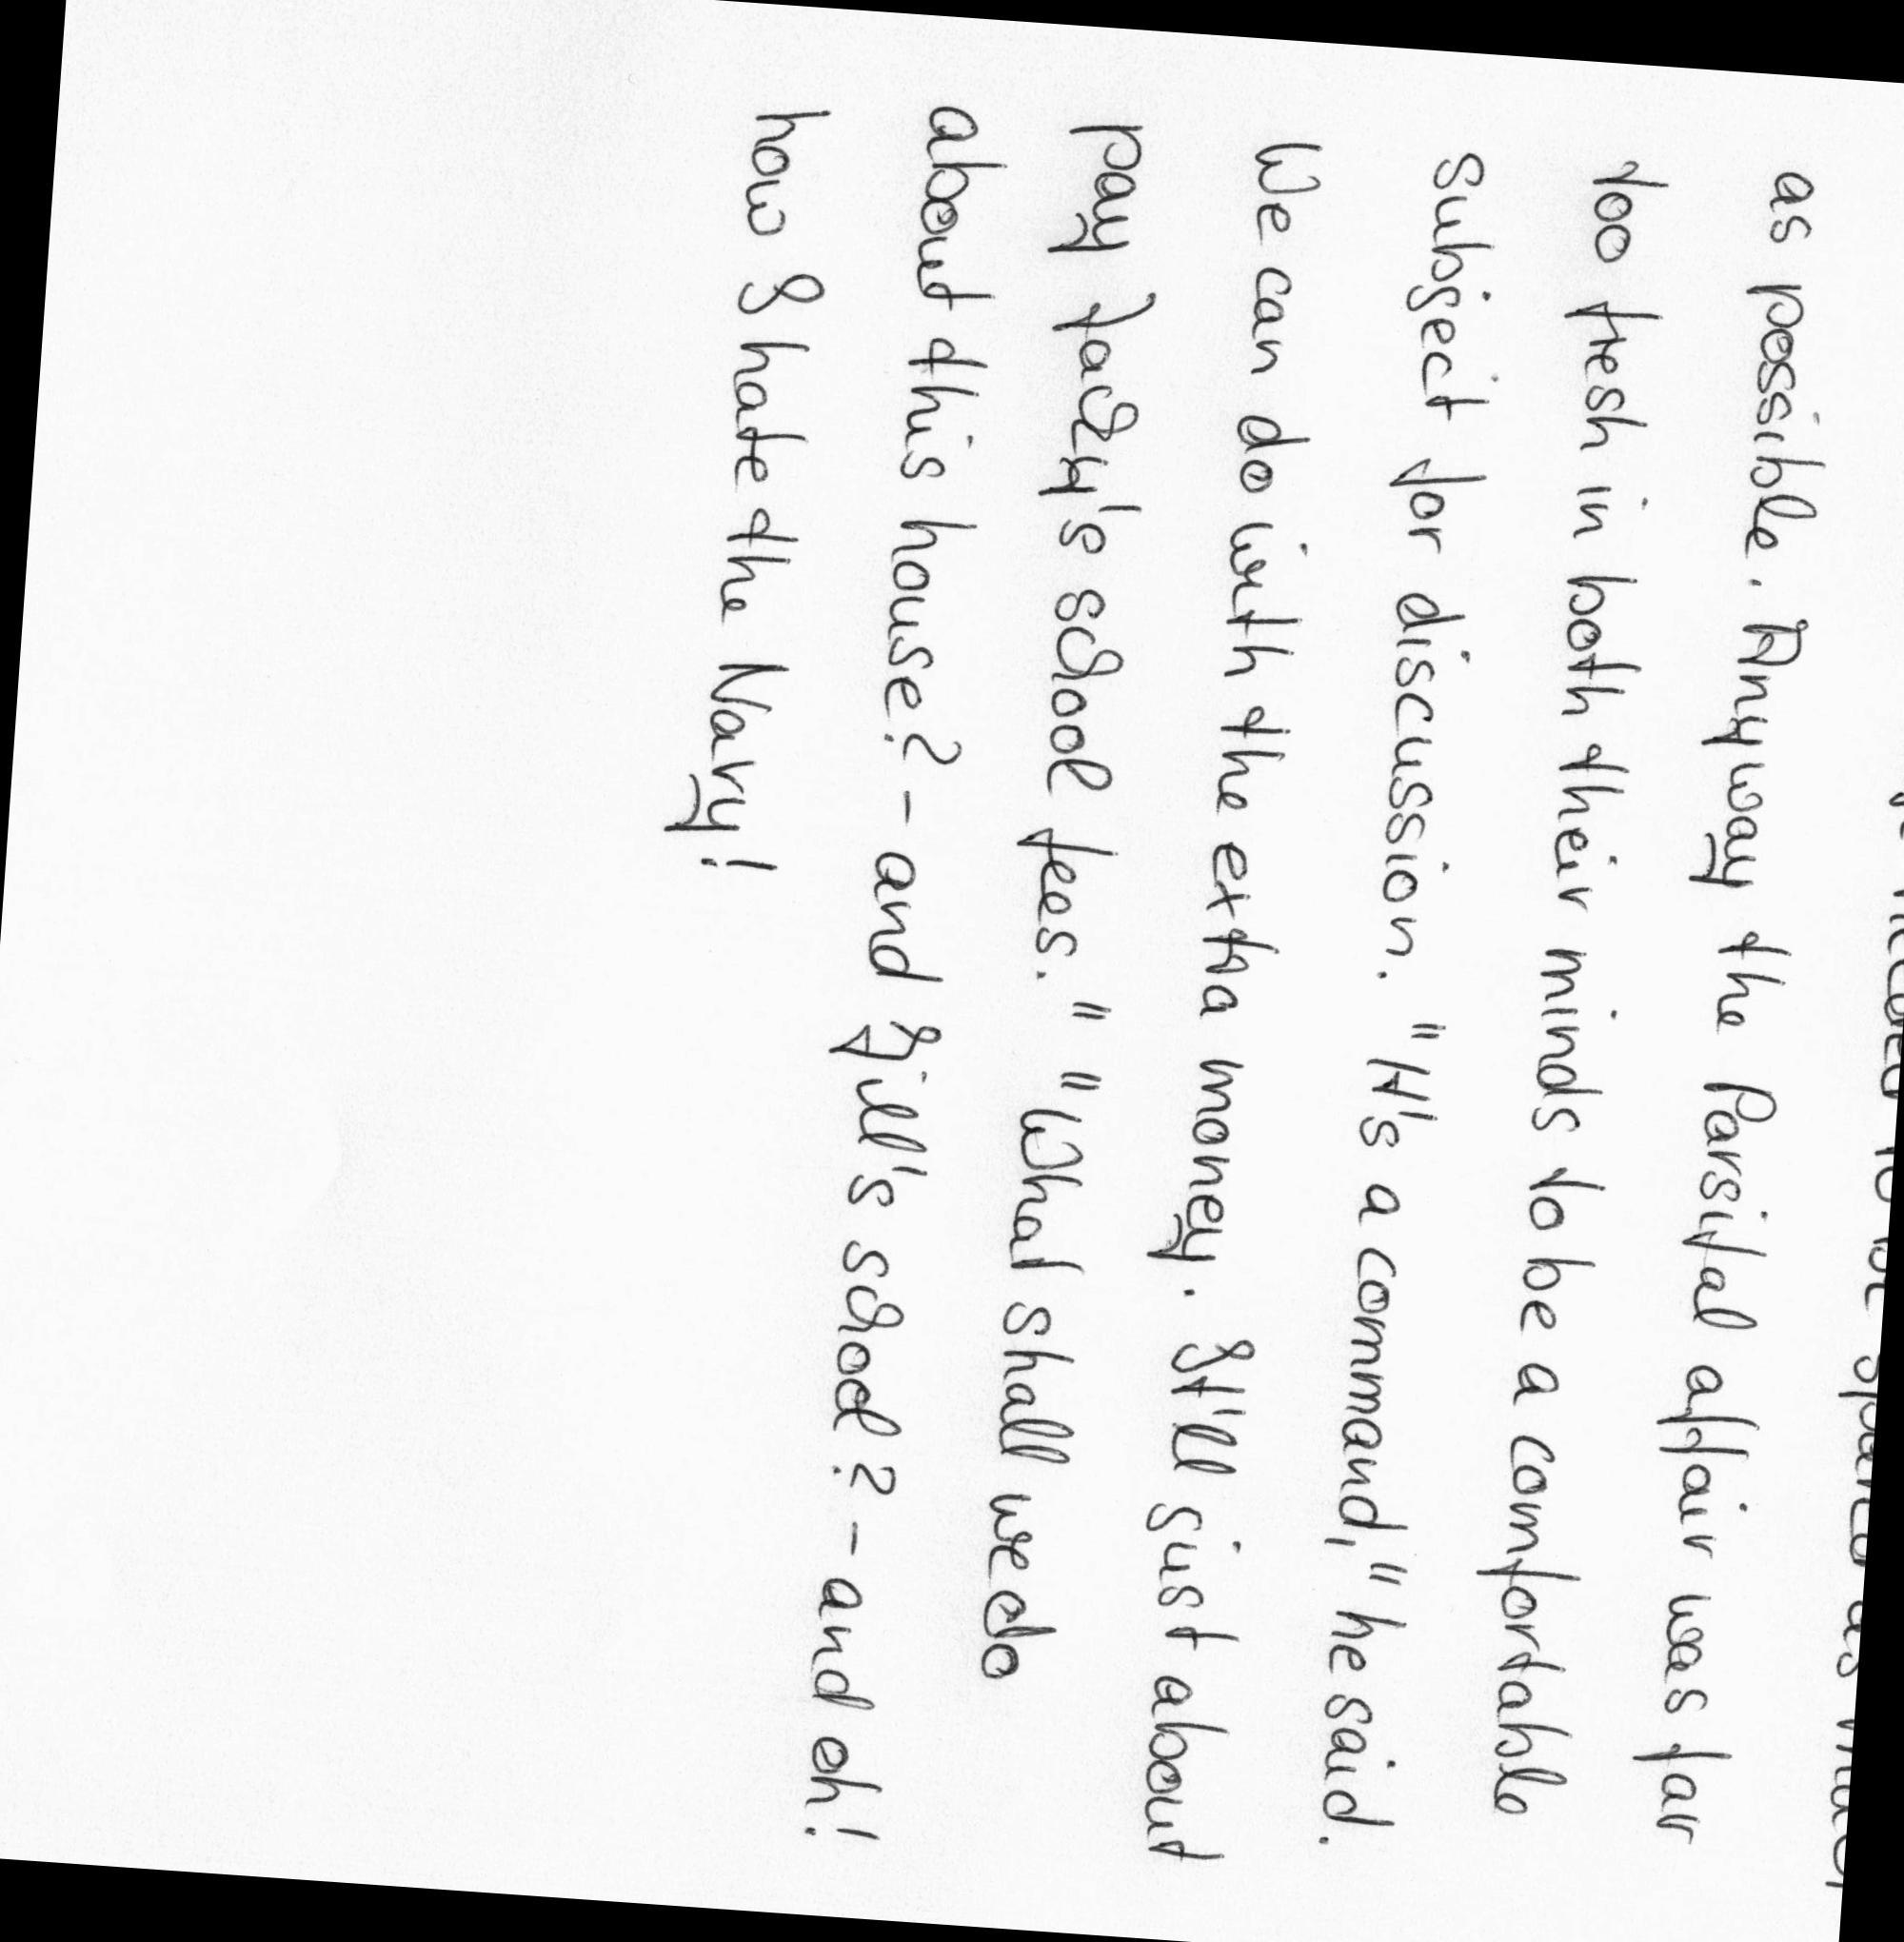 as possible. Anyway the Parsifal affair was far
too fresh in both their minds to be a comfortable
subject for discussion. "It's a command," he said.
We can do with the extra money. It'll just about
pay Jacky's school fees." "What shall we do
about this house? - and Jill's school? - and oh!
how I hate the Navy!